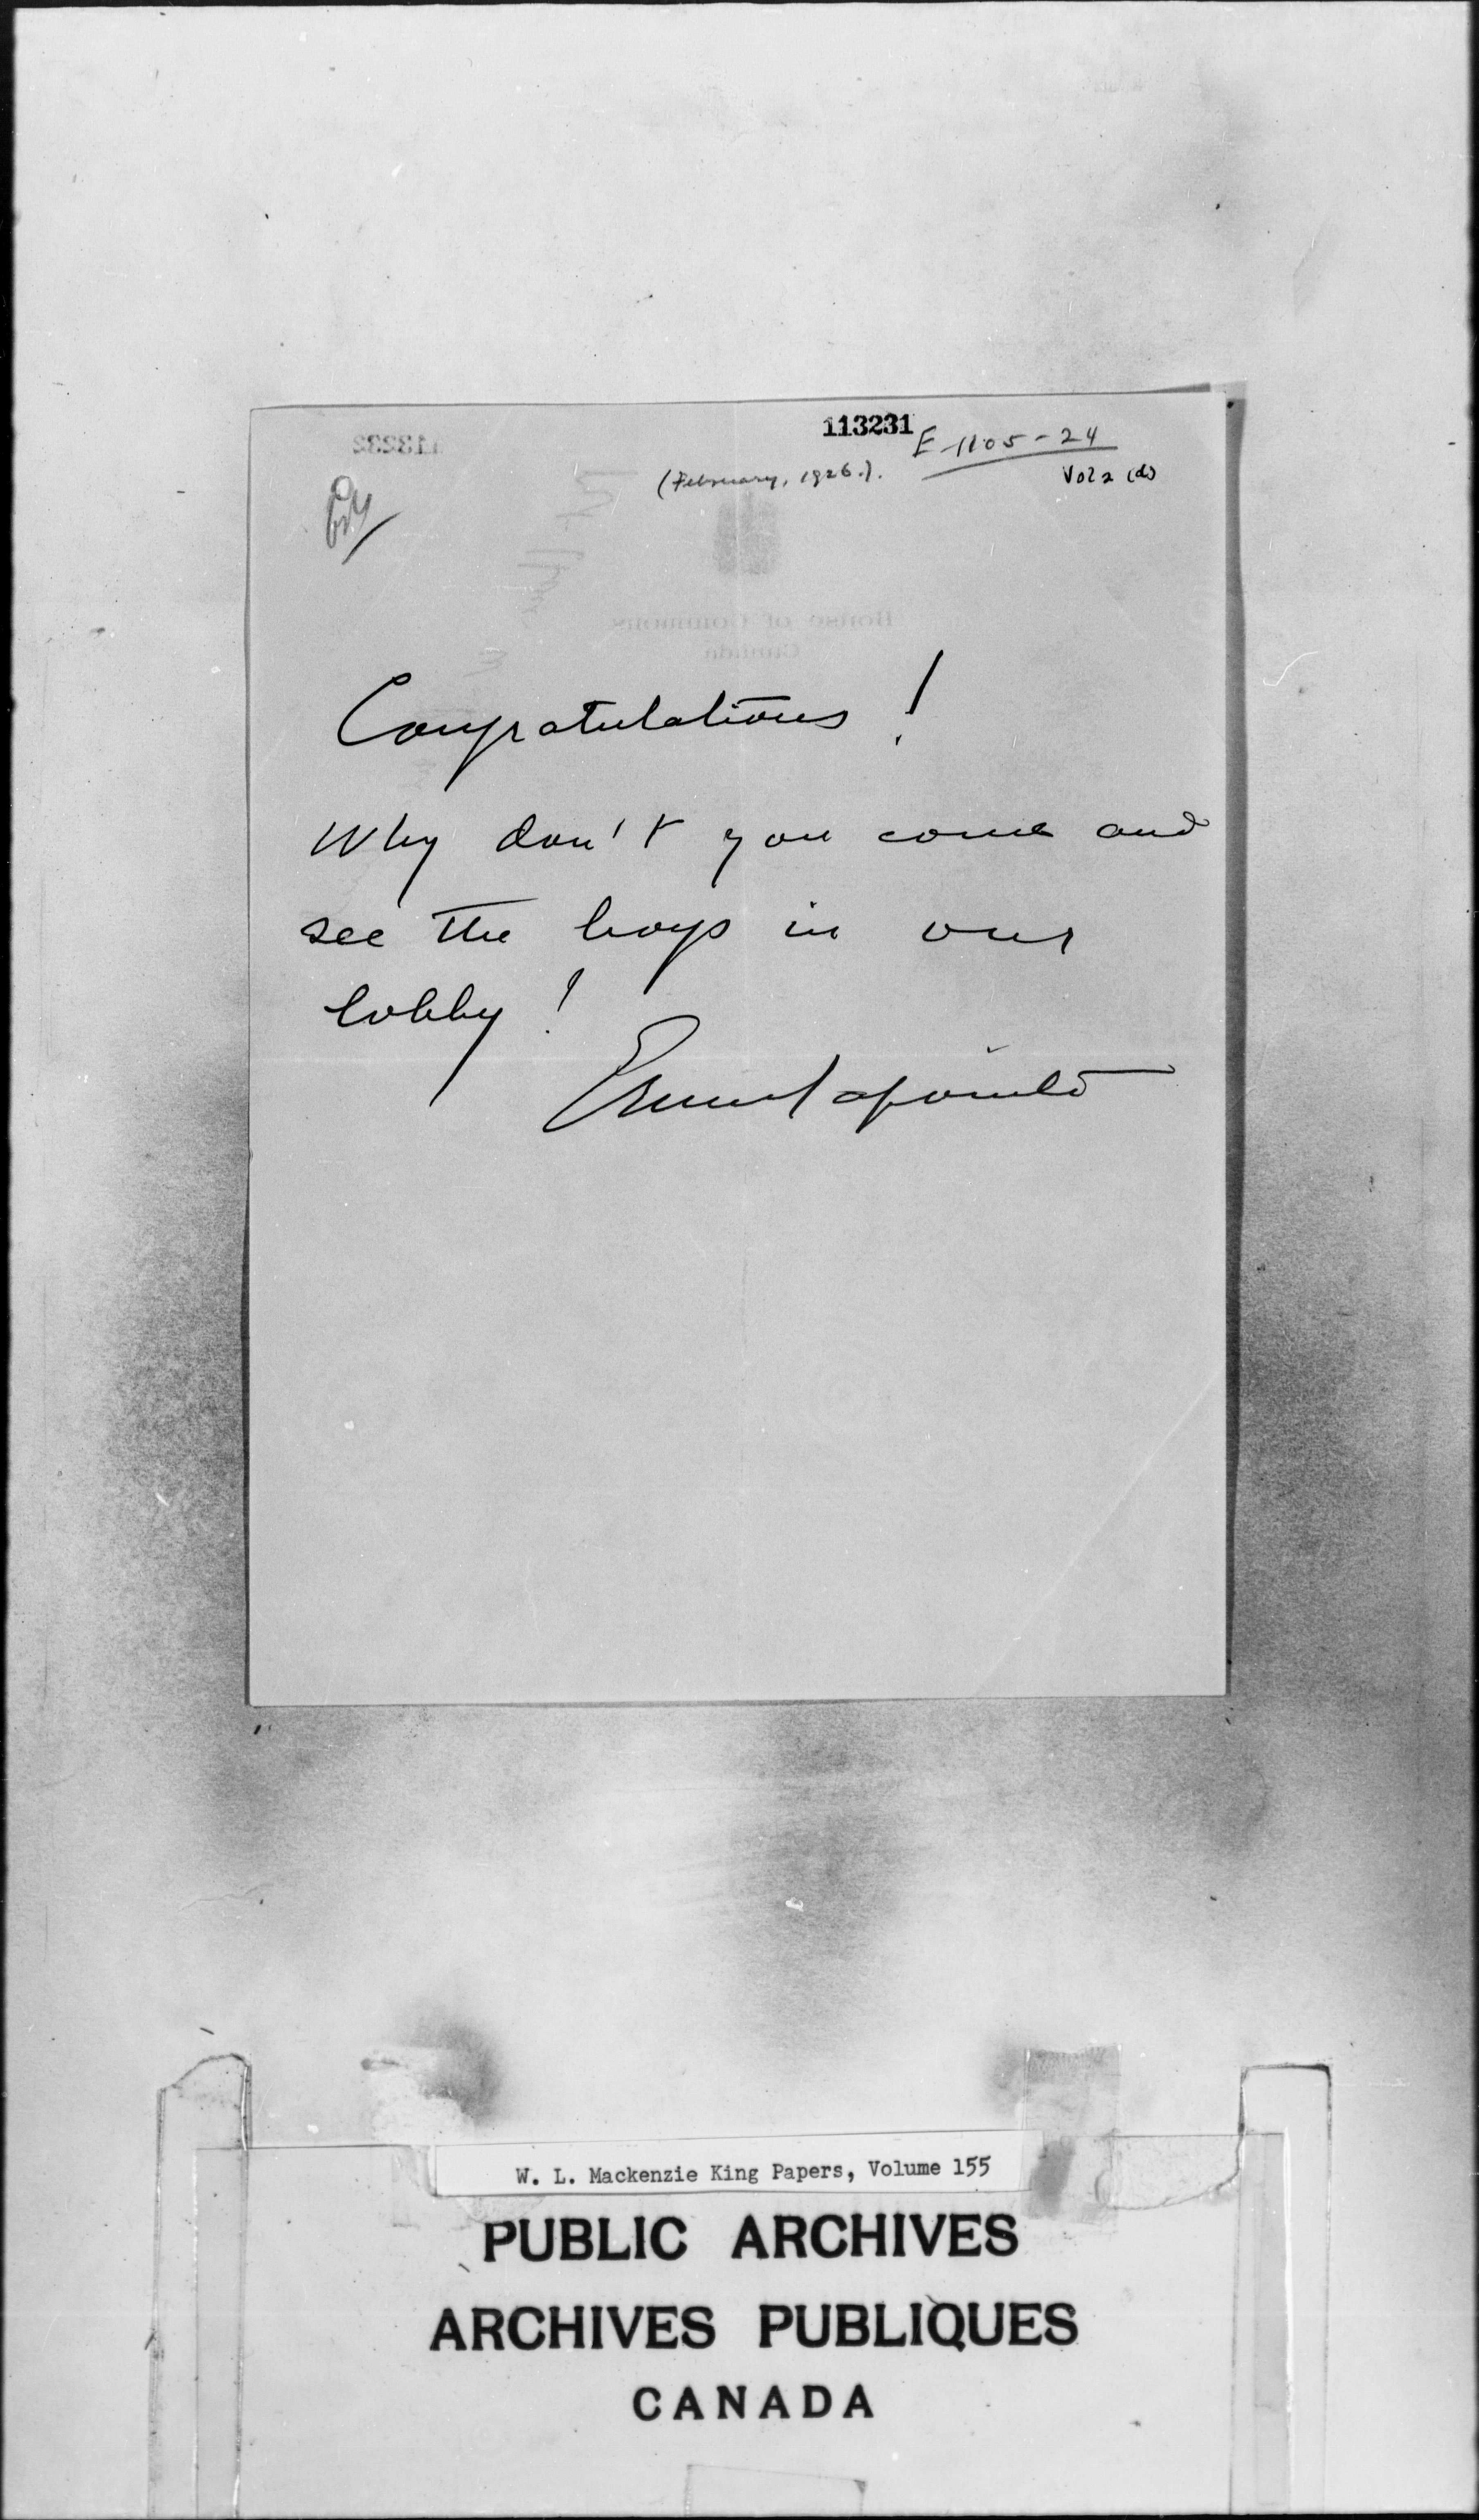 113231
E-1105-24
(February, 1926.).
Vol 2 (d)
113232
House of Commons
Canada
Congratulations !
Why don't you come and
see the boys in our
lobby !
Ernest Lapointe
W. L. Mackenzie King Papers, Volume 155
PUBLIC ARCHIVES
ARCHIVES PUBLIQUES
CANADA